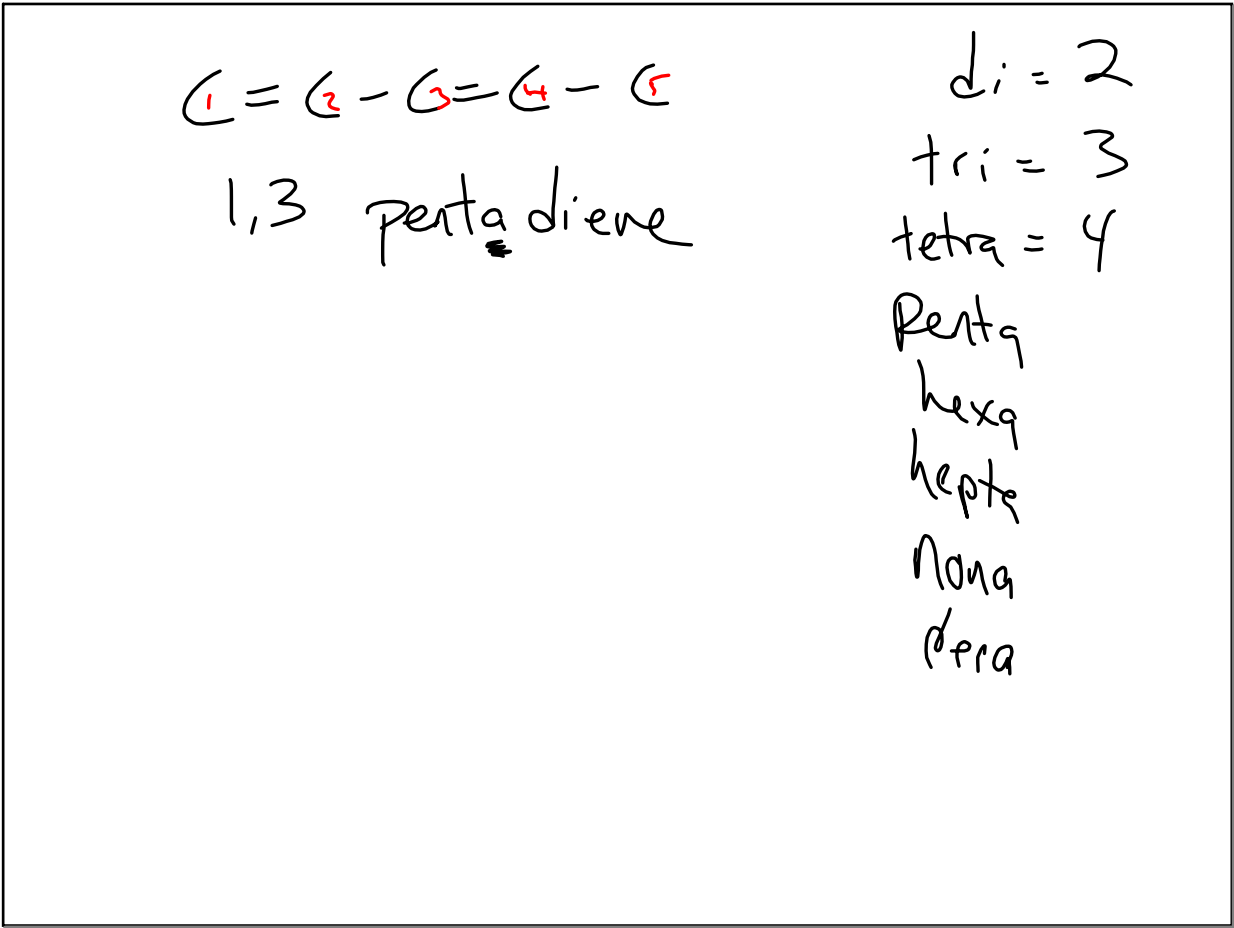 C1 = C2 - C3 = C4 - C5
1,3 pentadiene
di = 2
tri = 3
tetra = 4
penta
hexa
hepta
nona
deca